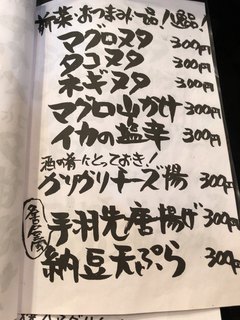 前菜・おつまみ一品八品!
マグロヌタ 300円
タコヌタ 300円
ネギヌタ 300円
マグロ山かけ 300円
イカの塩辛 300円
酒の肴にとっておき!
グリグリチーズ揚 300円
手羽先唐揚げ 300円
納豆天ぷら 300円